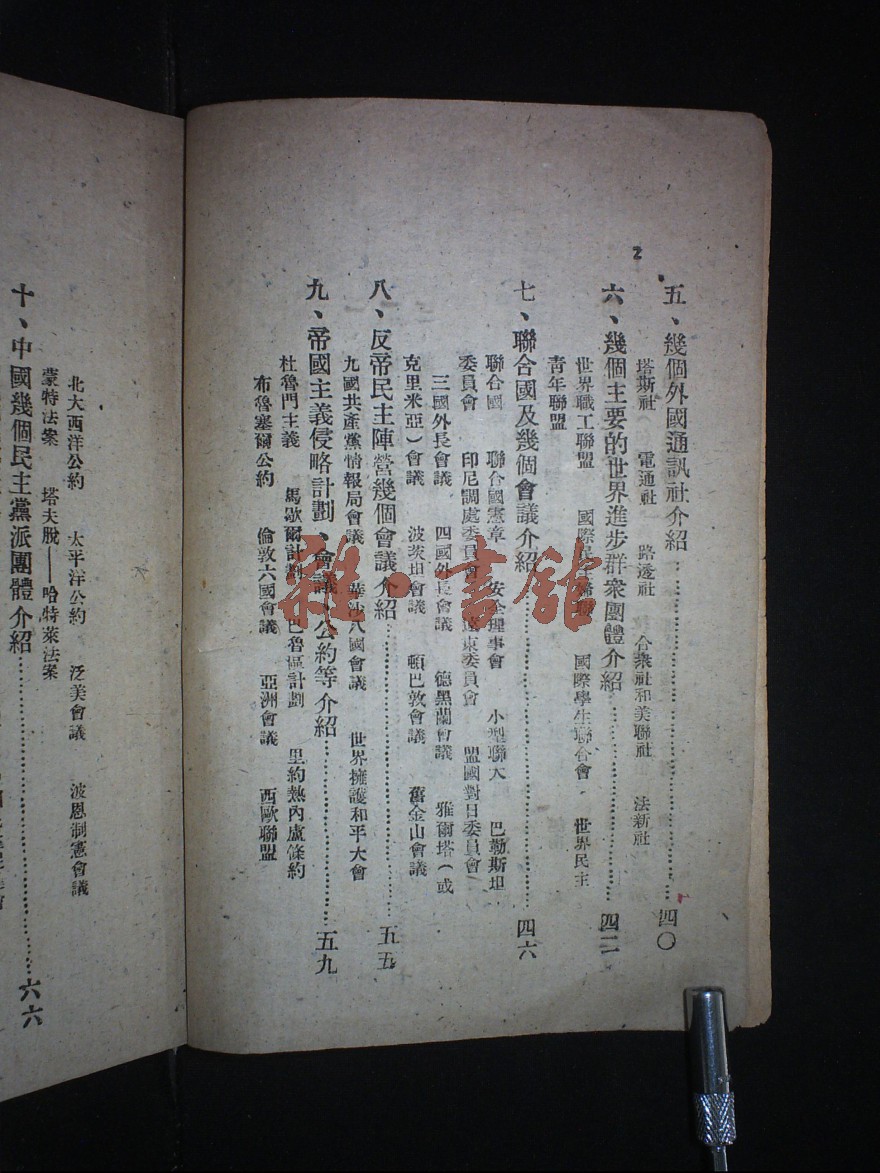 2
五、幾個外國通訊社介紹……………………四〇
塔斯社 電通社 路透社 合衆社和美聯社 法新社
六、幾個主要的世界進步群衆團體介紹……………………四二
世界職工聯盟 國際民主婦聯 國際學生聯合會 世界民主
青年聯盟
七、聯合國及幾個會議介紹……………………四六
聯合國 聯合國憲章 安全理事會 小型聯大 巴勒斯坦
委員會 印尼調處委員會 遠東委員會 盟國對日委員會
三國外長會議 四國外長會議 德黑蘭會議 雅爾塔(或
克里米亞)會議 波茨坦會議 頓巴敦會議 舊金山會議
八、反帝民主陣營幾個會議介紹……………………五五
九國共產黨情報局會議 華沙八國會議 世界擁護和平大會
九、帝國主義侵略計劃、會議、公約等介紹……………………五九
杜魯門主義 馬歇爾計劃 巴魯區計劃 里約熱內盧條約
布魯塞爾公約 倫敦六國會議 亞洲會議 西歐聯盟
北大西洋公約 太平洋公約 泛美會議 波恩制憲會議
蒙特法案 塔夫脫——哈特萊法案
十、中國幾個民主黨派團體介紹……………………六六
雜·書館